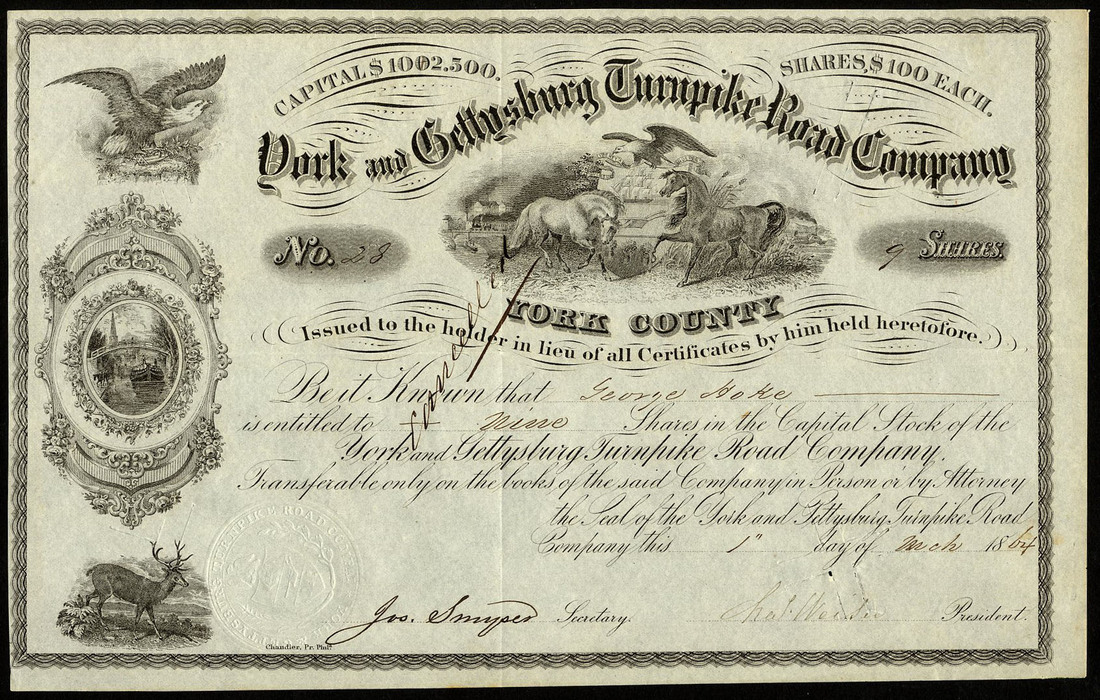 CAPITAL $ 1002.500.
SHARES, $ 100 EACH.
York and Gettysburg Turnpike Road Company
No. 28
9 SHARES.
Cancelled
YORK COUNTY
Issued to the holder in lieu of all Certificates by him held heretofore.
Be it Known that George Hoke
is entitled to Nine Shares in the Capital Stock of the
York and Gettysburg Turnpike Road Company,
Transferable only on the books of the said Company in Person or by Attorney
the Seal of the York and Gettysburg Turnpike Road
Company this 1" day of Mch 1864
TURNPIKE ROAD COMPANY
Jos. Smyser Secretary.
President.
Chandler, Pr. Phila